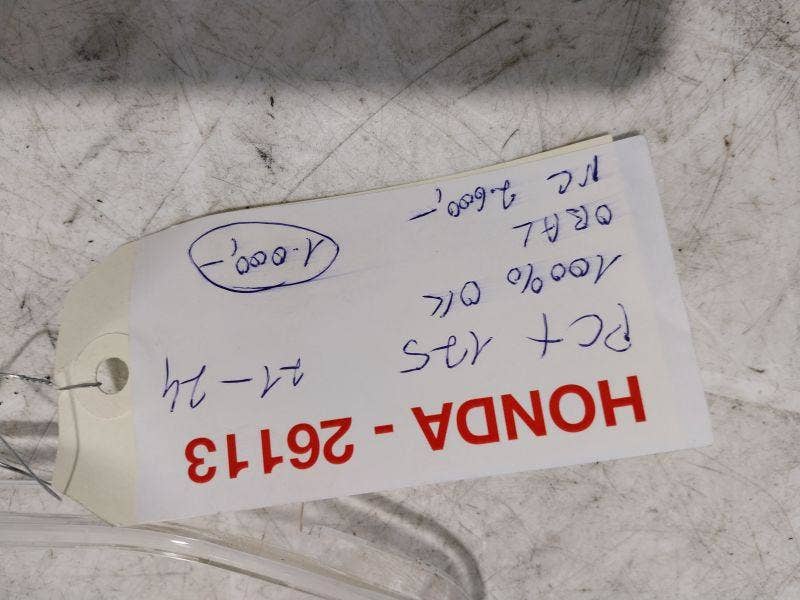 HONDA - 26113
PCX 125 21-24
100% OK
OBAL
NC 2.600,-
1.000,-